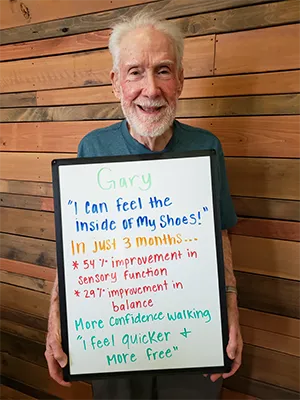 Gary
"I Can feel the
inside of My Shoes!"
In Just 3 months...
* 54% improvement in
sensory function
* 29% improvement in
balance
More Confidence walking
"I feel quicker +
More free"